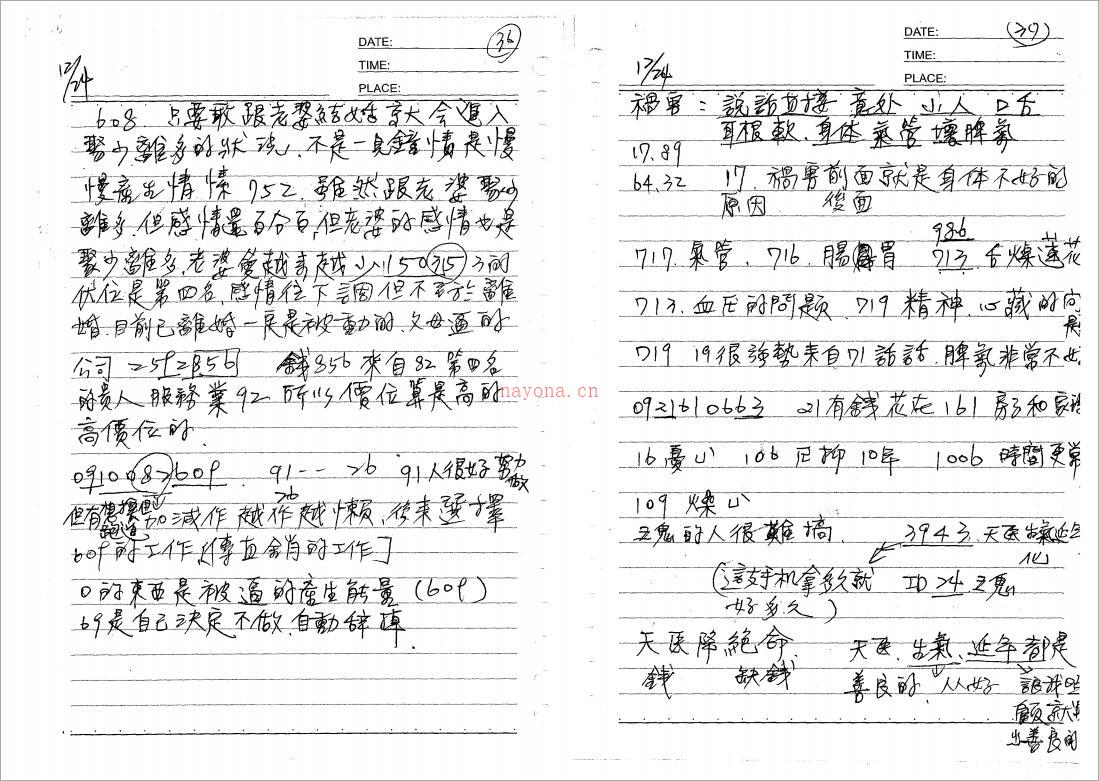 DATE: 36
TIME:
PLACE:
12/24
608. 只要敢跟老婆結婚就大会進入
聚少離多的狀況、不是一見鍾情是慢
慢産生情愫 752. 雖然跟老婆聚少
離多,但感情還百分百,但老婆的感情也是
聚少離多.老婆會越來越小川150 315
伏位是第四名,感情往下調但不至於離
婚目前已離婚一定是被動的.父母逼的
公司 2592856 錢856來自82第四名
的貴人服務業92 所以價位算是高的
高價位的.
0910082609. 91--26 91人很好努力做
26
但有想換但跑道
加減作越作越懶,後來選擇
609的工作,[傳直銷的工作]
0的東西是被逼的產生能量(609)
69是自己決定不做.自動辞掉
nayona.cn
DATE: 37
TIME:
PLACE:
12/24
禍害:說話直接 意处 小人 口舌
耳根軟.身体 氣管壞脾氣
17.89
64.32 17.禍害前面就是身体不好的
原因. 後面
986
717.氣管.716.腸胃 713.舌燥蓮花
713.血圧的問題.719精神.心藏的問題
719 19很強勢来自71話話.脾氣非常不好
0921610663 21有錢花在161房子和家
16憂心 106 圧抑10年 1006 時間更常
109 燥心
五鬼的人很難搞. 3943.天医生氣延年
化
(這支手机拿多久就 ID 24五鬼
好多久)
天医降絕命. 天医.生氣.延年都是
錢 缺錢 善良的 人好
顧家就
出善良的